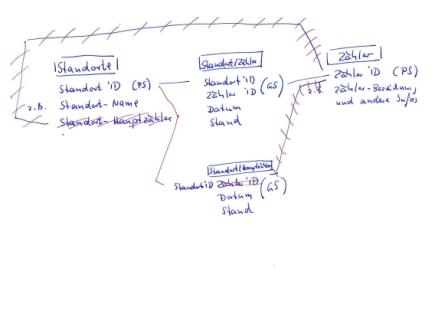 Standorte
Standort iD (PS)
z.B. Standort-Name
Standort-Hauptzähler
Standort/Zähler
Standort iD
Zähler iD (GS)
Datum
Stand
Zähler
Zähler iD (PS)
z.B. Zähler-Bezeichnung
und andere Infos
Standort/Hauptzähler
Standort iD Zähler iD (GS)
Datum
Stand